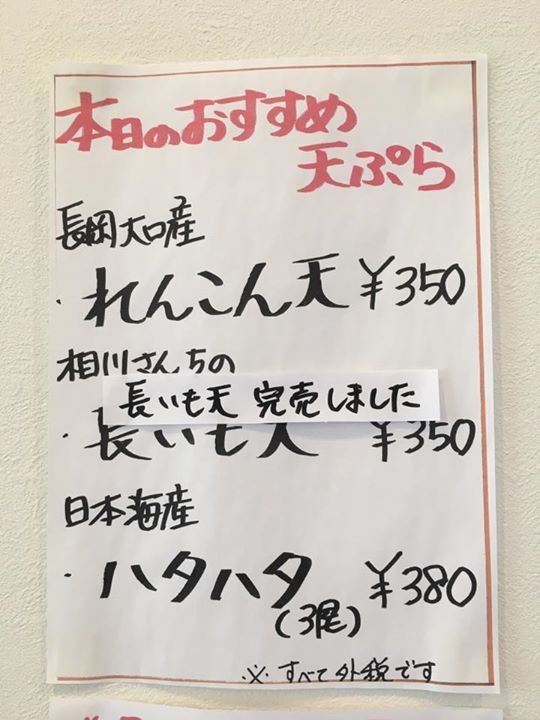 本日のおすすめ
天ぷら
長岡大口産
・れんこん天 ¥350
相川さんちの
長いも天 完売しました
・長いも天 ¥350
日本海産
・ハタハタ ¥380
(3尾)
※すべて外税です